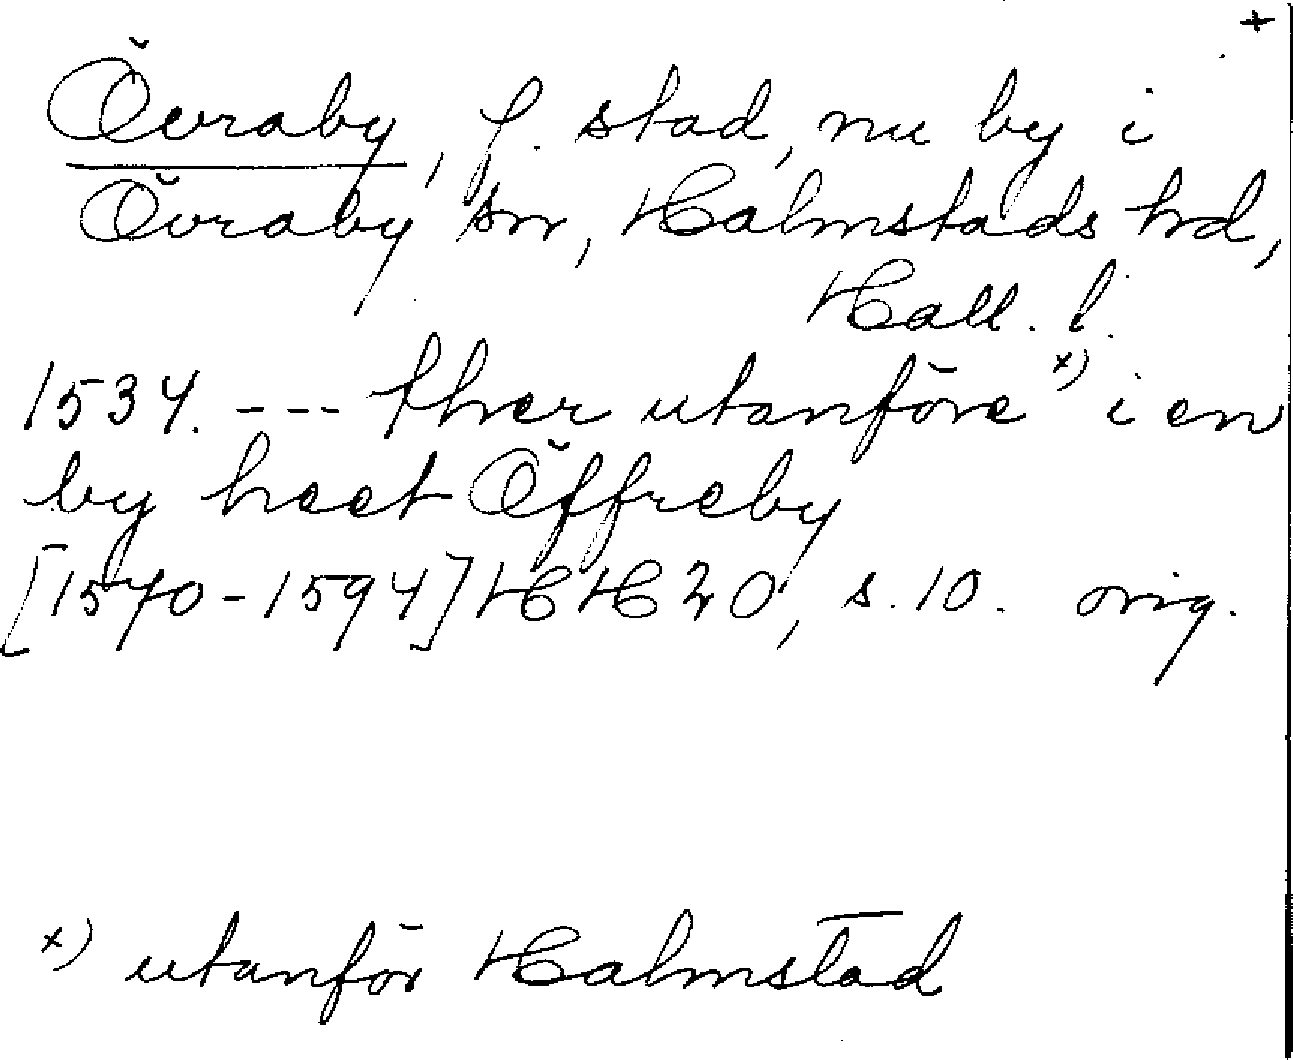 +
Övraby, f. stad, nu by i
Övraby sn, Halmstads hd,
Hall. l.
1534. --- ther utanföre x) i en
by heet Öffreby
[1570-1594] HH 20, s. 10. orig.
x) utanför Halmstad